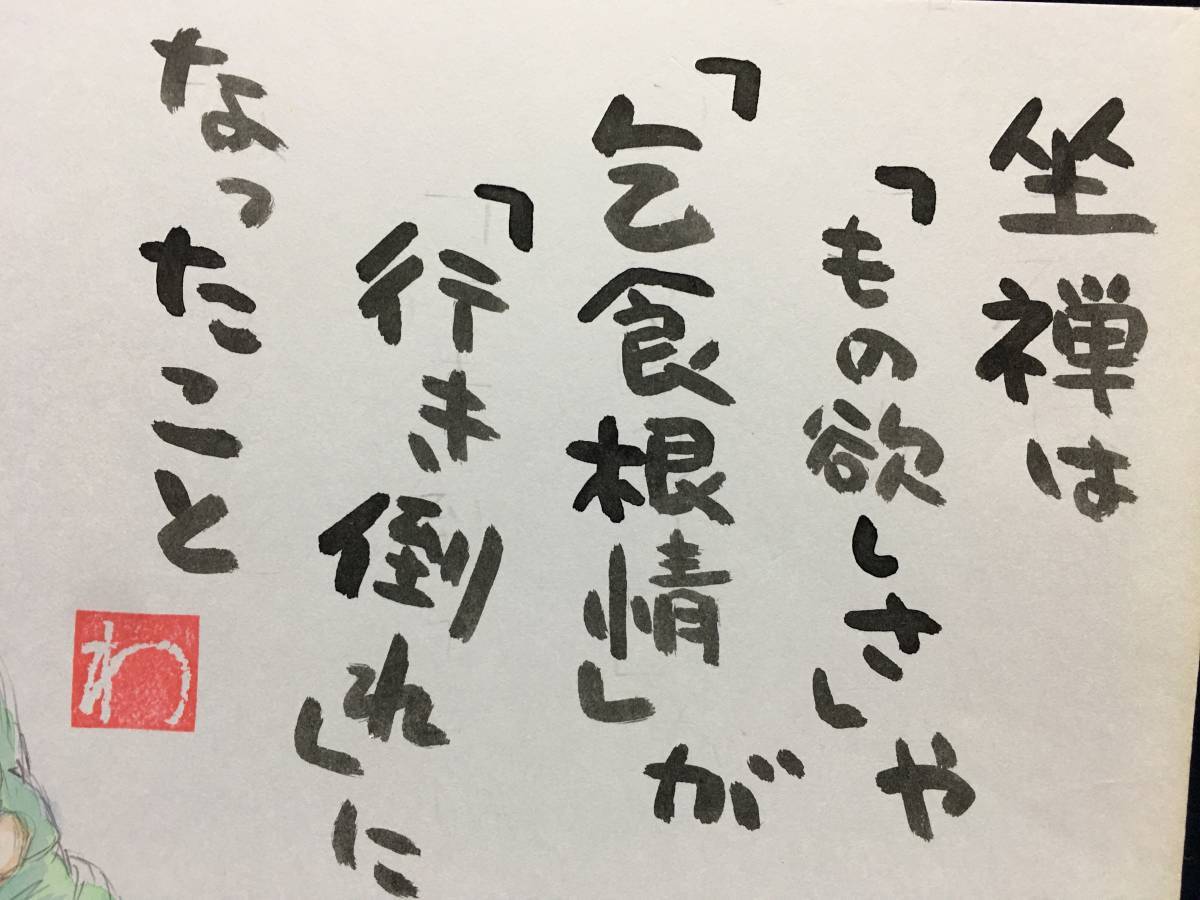 坐禅は
「もの欲しさ」や
「乞食根情」が
「行き倒れ」に
なったこと
わ